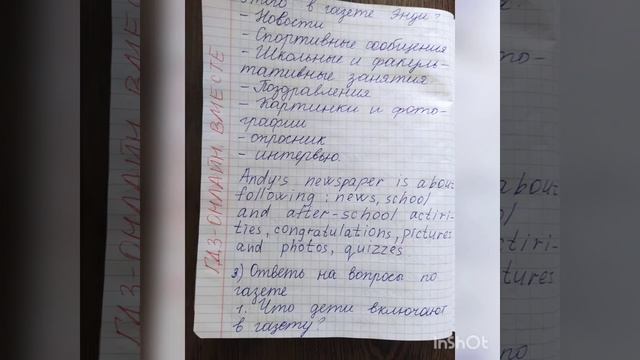 этого в газете Энди?
- Новости
- Спортивные сообщения
- Школьные и факуль-
тативные занятия
- Поздравления
- Картинки и фото-
графии
- опросник
- интервью.
Andy's newspaper is about
following: news, school
and after-school actiri-
ties, congratulations, pictures
and photos, quizzes
3) Ответь на вопросы по
газете
1. Что дети включают
в газету?
ГДЗ-ОНЛАЙН ВМЕСТЕ
InShOt